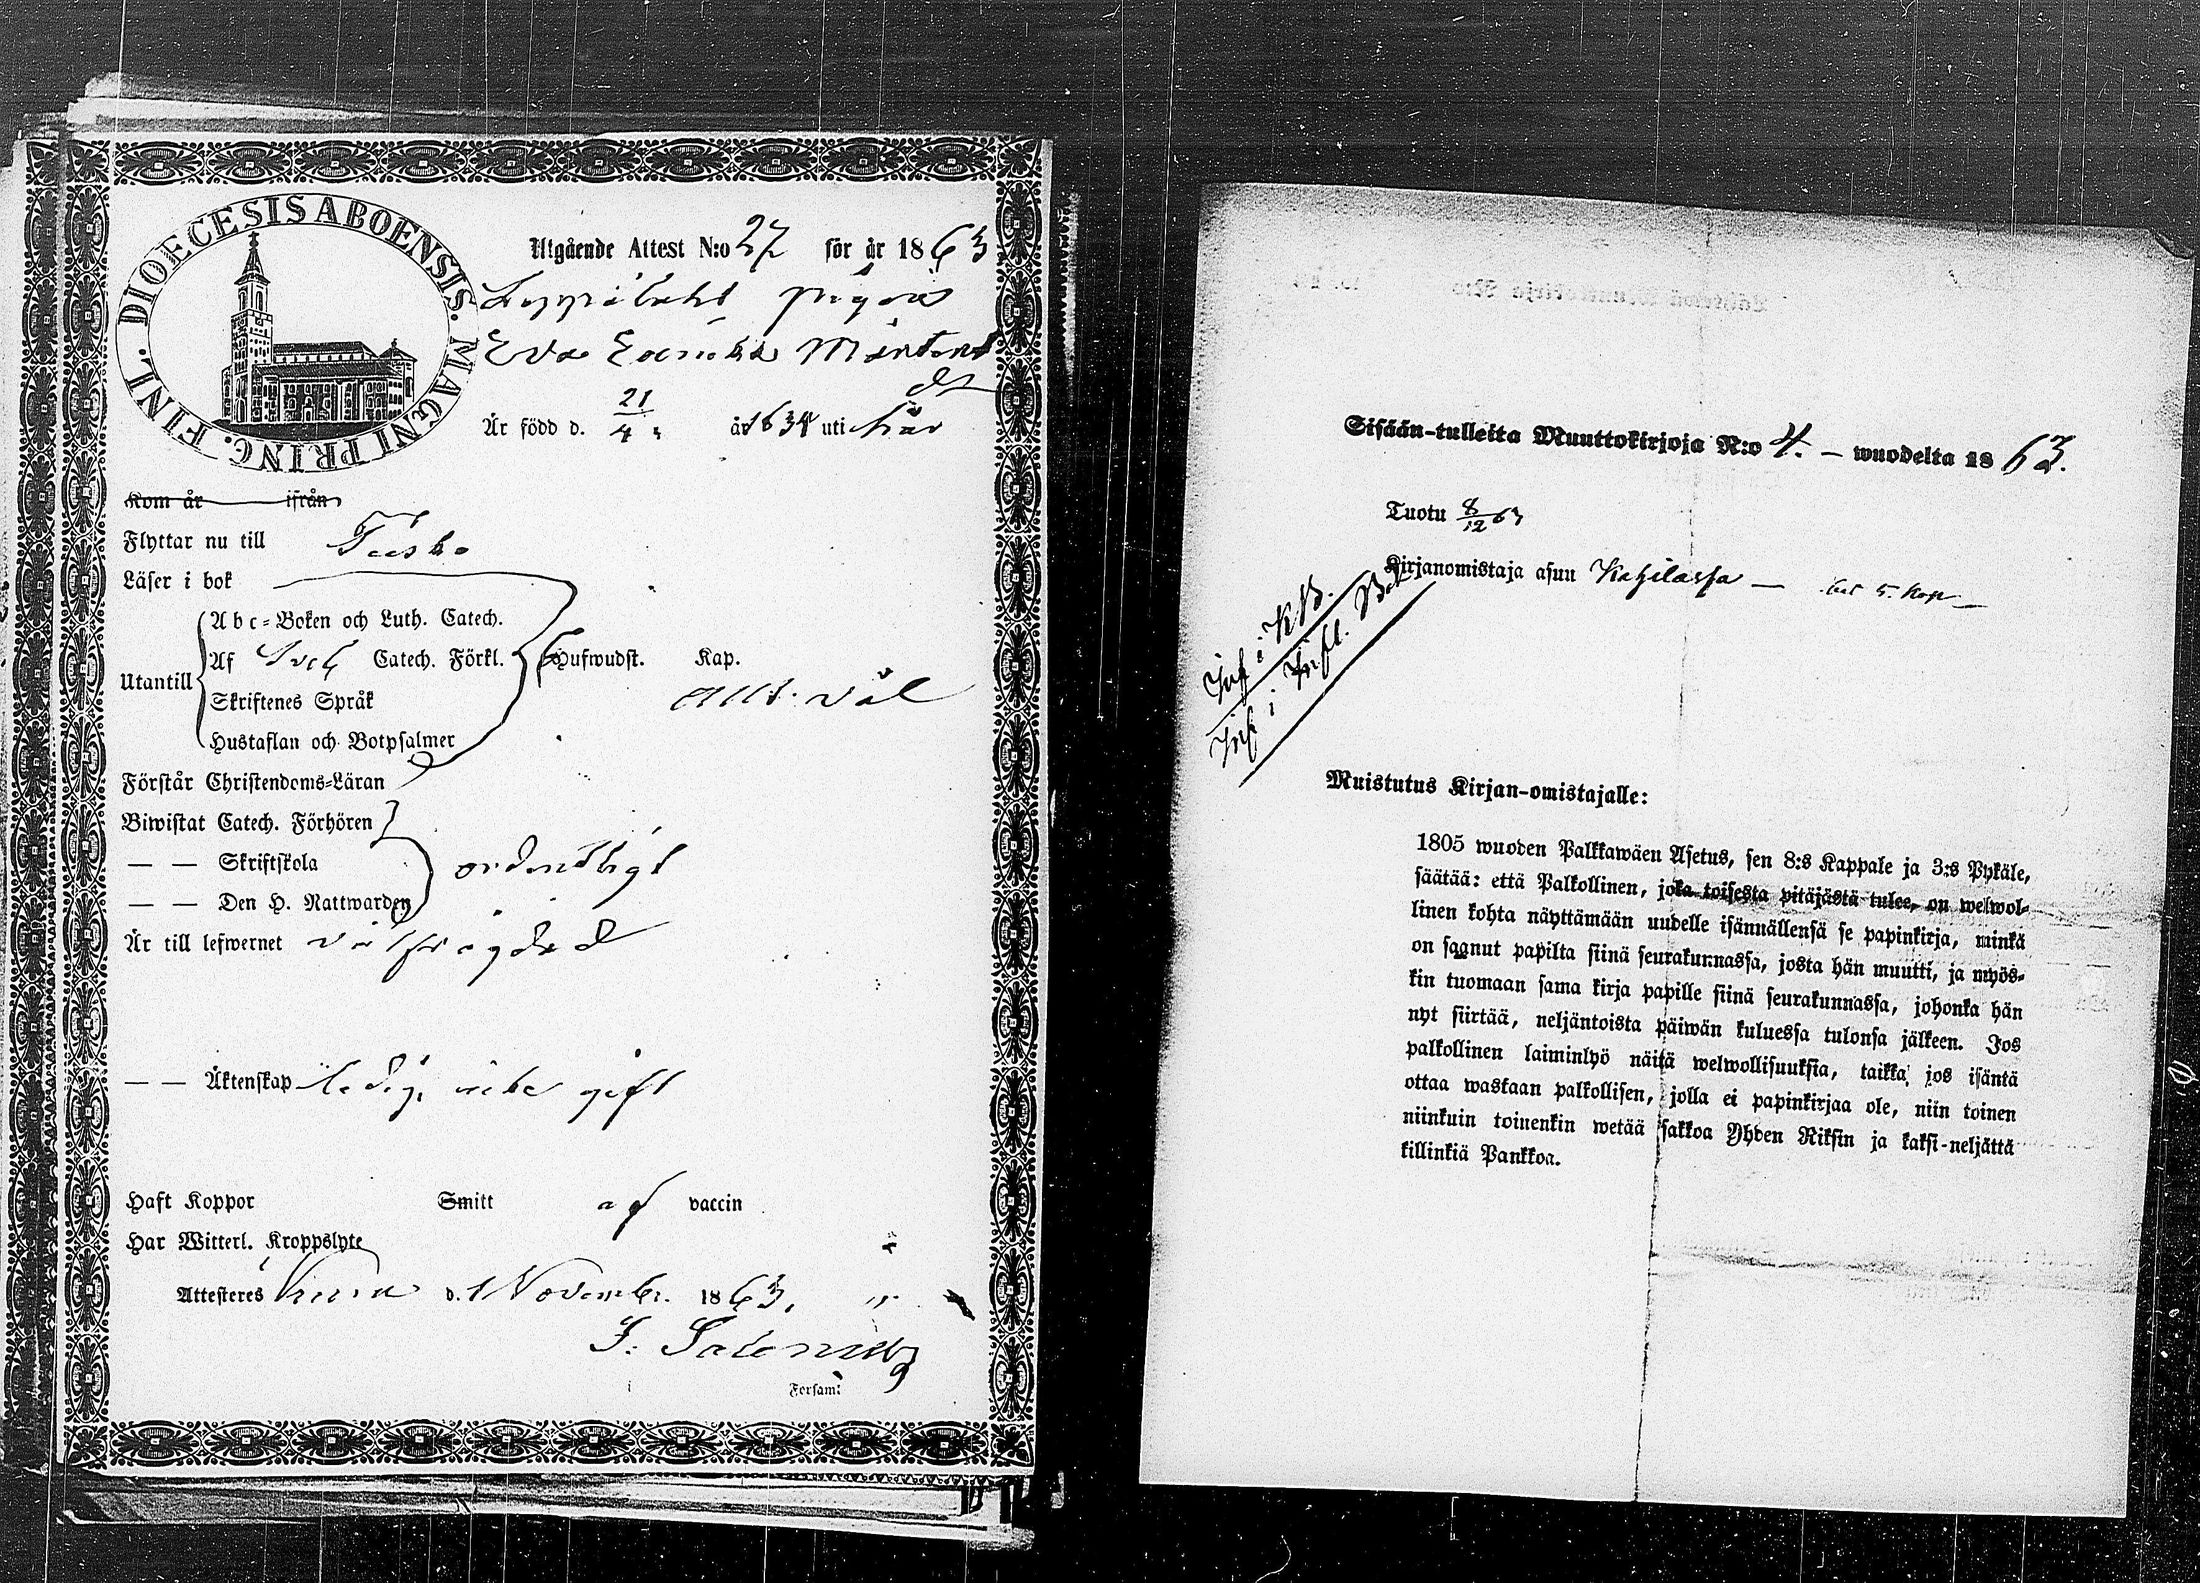 DIOECESIS ABOENSIS. MAGNI PRINC. FINL.
Utgående Attest N:o 27 för år 1863.
pigan
Eva Mårtens
dr
Är född d. 21/4 år 1834 uti här
Kom år ifrån
Flyttar nu till Teisko
Läser i bok
Utantill
Abc-Boken och Luth. Catech.
Af Sveb. Catech. Förkl. Hufwudst. Kap.
Skriftenes Språk
allt väl
Hustaflan och Botpsalmer
Förstår Christendoms-Läran
Biwistat Catech. Förhören
— — Skriftskola ordentligt
— — Den H. Nattwarden
Är till lefwernet välfrägdad
— — Äktenskap ledig, icke gift
Haft Koppor Smitt af vaccin
Har Witterl. Kroppslyte
Attesteres d. 1 November 1863.
Församl
Sisään-tulleita Muuttokirjoja N:o 4. — wuodelta 1863.
Tuotu 8/12 63
Kirjanomistaja asuu — bet 5. kop —
Inf i KB.
Inf i Infl. Bok
Muistutus Kirjan-omistajalle:
1805 wuoden Palkkawäen Asetus, sen 8:s Kappale ja 3:s Pykäle,
säätää: että Palkollinen, joka toisesta pitäjästä tulee, on welwol-
linen kohta näyttämään uudelle isännällensä se papinkirja, minkä
on saanut papilta siinä seurakunnassa, josta hän muutti, ja myös-
kin tuomaan sama kirja papille siinä seurakunnassa, johonka hän
nyt siirtää, neljäntoista päiwän kuluessa tulonsa jälkeen. Jos
palkollinen laiminlyö näitä welwollisuuksia, taikka jos isäntä
ottaa wastaan palkollisen, jolla ei papinkirjaa ole, niin toinen
niinkuin toinenkin wetää sakkoa Yhden Riksin ja kaksi-neljättä
killinkiä Pankkoa.